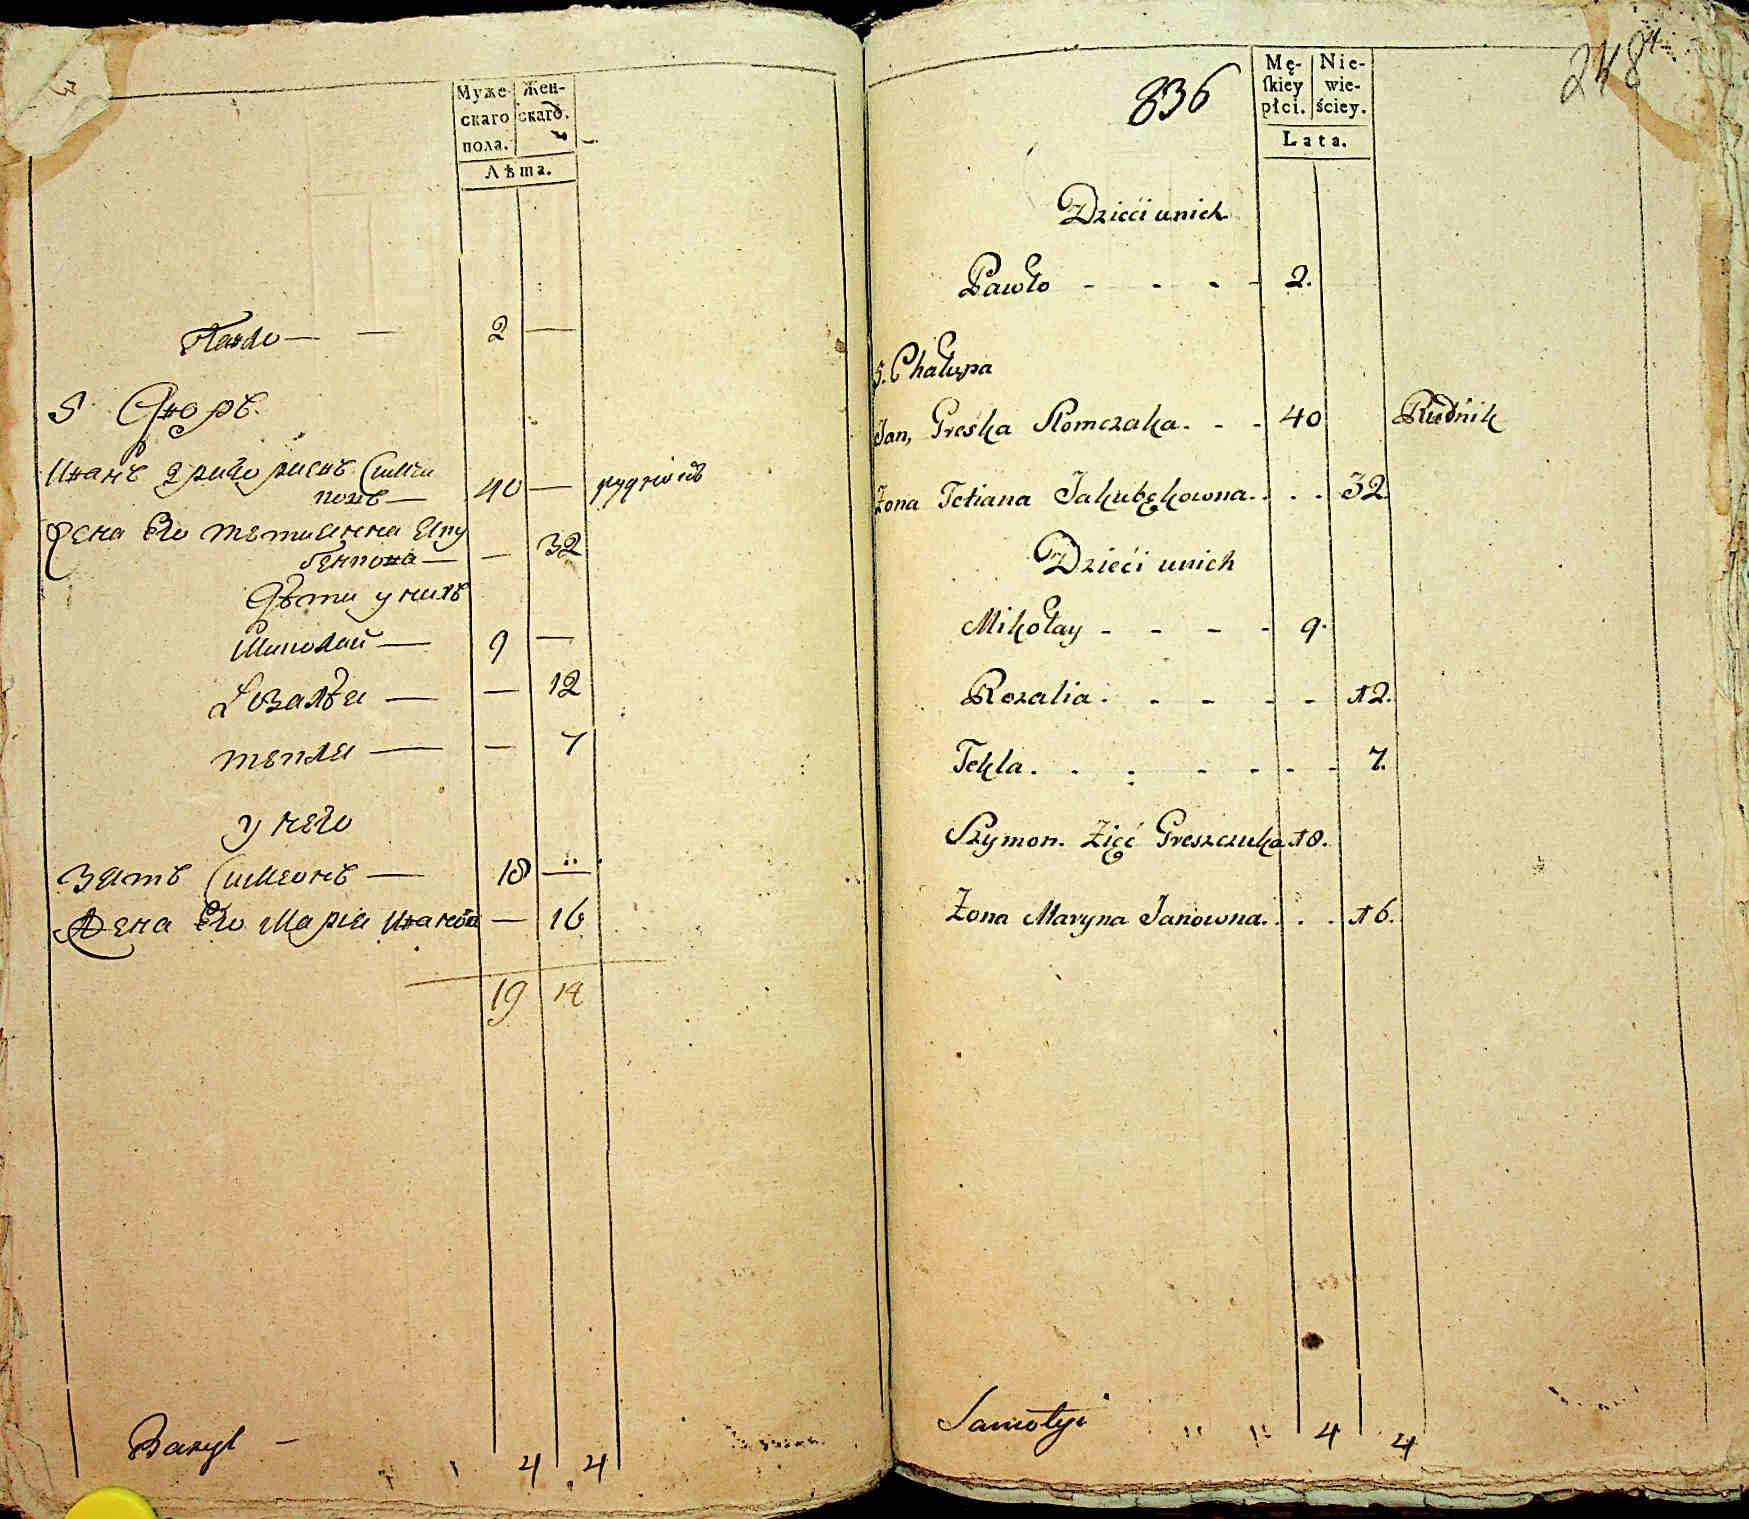 Муже- Жен-
скаго скаго.
пола.
Лѣта.
Павло — — 2 —
5 Дворъ.
Иванъ Григориевъ Слим
40 — рудникъ
Жена Его Тетианна Яку
— 32
Дѣти у нихъ
Николай — 9 —
Розалѣя — — 12
Текля — — 7
у него
Зять Симеонъ — 18 —
Жена Его Марiя Иванова — 16
19 14
Bazyl —
4 4
836
248
Mę- Nie-
skiey wie-
płci. ściey.
Lata.
Dzieći unich
Pawło - - - - 2.
5. Chałupa
Jan, Greśka Slomczaka. - - 40 Rudnik
Żona Tetiana Jakubękowna. . . . 32.
Dzieći unich
Mikołay - - - - 9.
Rozalia. - - - - 12.
Tekla. - - - - - - - 7.
Szymon. Zięć Greszczuka 18.
Żona Maryna Janowna. . . . 16.
Samołyi
4 4